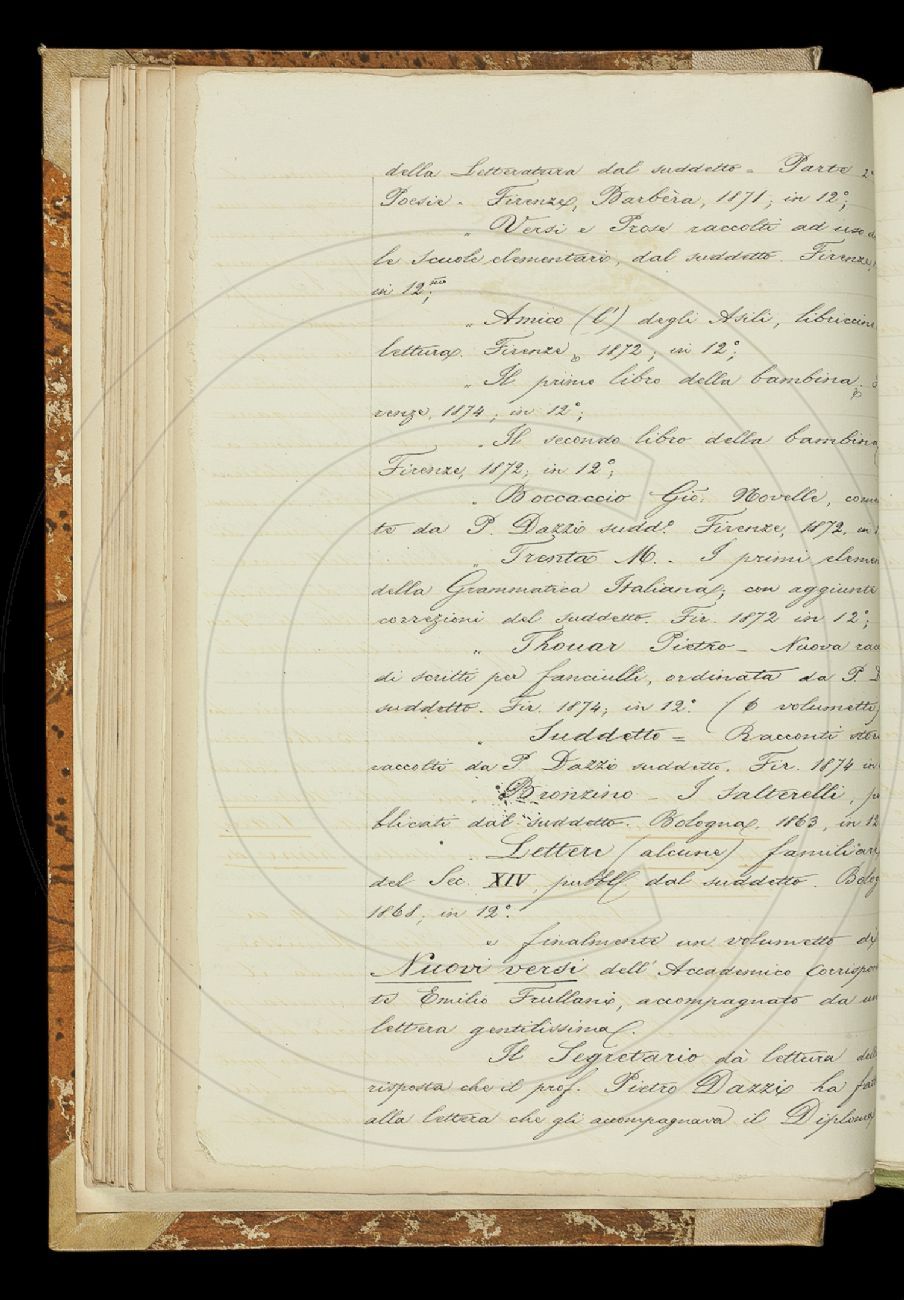 della Letteratura dal suddetto = Parte 2ª
Poesie. Firenze, Barbèra, 1871; in 12°;
" Versi e Prose raccolti ad uso
le scuole elementari, dal suddetto. Firenze,
in 12.mo;
" Amico (L') degli Asili, libriccin
lettura. Firenze, 1872; in 12°;
" Il primo libro della bambina.
renze, 1874; in 12°;
" Il secondo libro della bambina
Firenze, 1872; in 12°;
" Boccaccio Gio. Novelle, com
te da P. Dazzi sudd.° Firenze, 1872. in
" Trenta M. - I primi elemen
della Grammatica Italiana; con aggiunte
correzioni del suddetto. Fir. 1872 in 12°;
" Thouar Pietro - Nuova rac
di scritti per fanciulli, ordinata da P. D
suddetto. Fir. 1874; in 12.° (6 volumetti)
" Suddetto = Racconti stor
raccolti da P. Dazzi suddetto. Fir. 1874 in
" Bronzino - I Salterelli, pu
blicati dal suddetto. Bologna. 1863, in 12
" Lettere (alcune) familiari
del Sec. XIV, pubbl. dal suddetto. Bolog
1868; in 12°.
e finalmente un volumetto di
Nuovi versi dell'Accademico Corrispon
te Emilio Frullani, accompagnato da un
lettera gentilissima.
Il Segretario dà lettura dell
risposta che il prof. Pietro Dazzi ha fat
alla lettera che gli accompagnava il Diploma